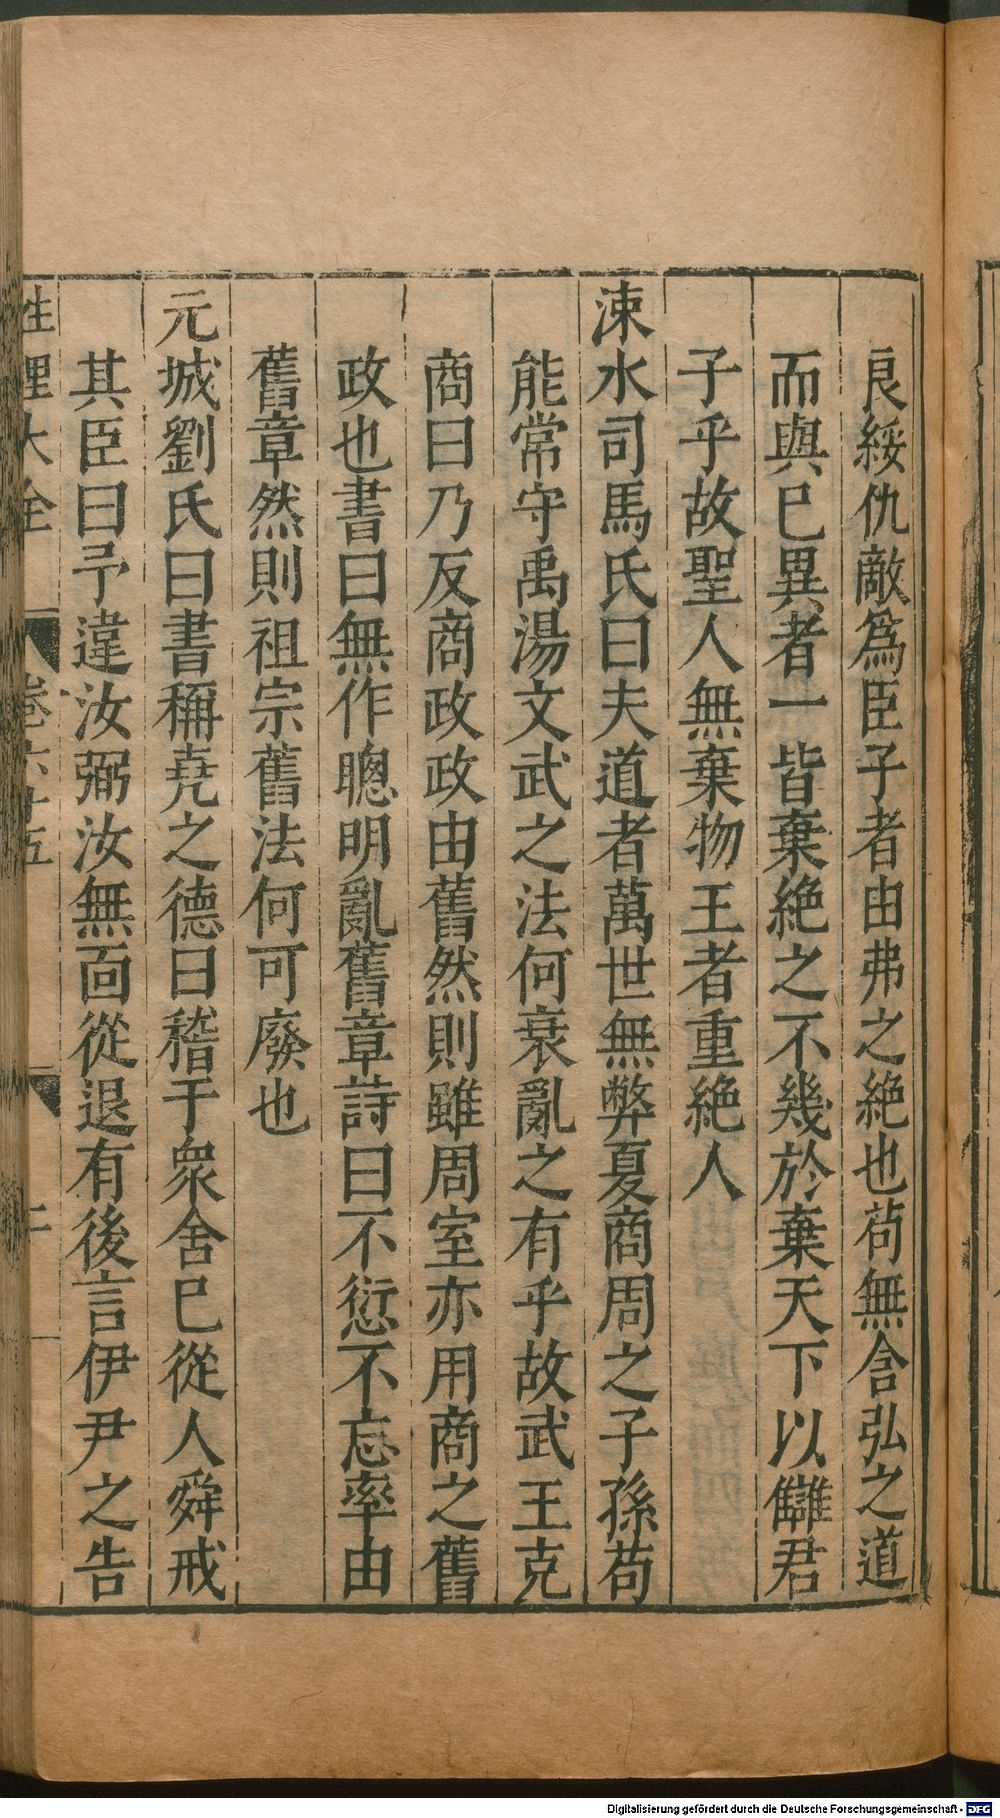 良綏仇敵爲臣子者由弗之絶也茍無含弘之道
而與已異者一皆棄絶之不幾於棄天下以讎君
子乎故聖人無棄物王者重絶人
涑水司馬氏曰夫道者萬世無弊夏商周之子孫苟
能常守禹湯文武之法何衰亂之有乎故武王克
商曰乃反商政政由舊然則雖周室亦用商之舊
政也書曰無作聰明亂舊章詩曰不愆不忘率由
舊章然則祖宗舊法何可廢也
元城劉氏曰書稱堯之德曰稽于衆舍已從人舜戒
其臣曰予違汝弼汝無面從退有後言伊尹之告
性理大全 卷六十五 二
Digitalisierung gefördert durch die Deutsche Forschungsgemeinschaft - DFG